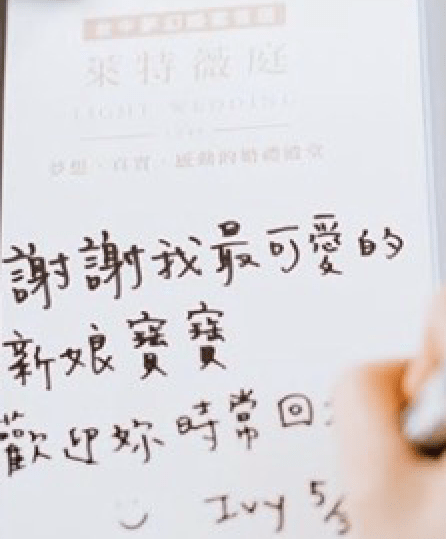 萊特薇庭
LIGHT WEDDING
夢想、真實、感動的婚禮殿堂
謝謝我最可愛的
新娘寶寶
歡迎妳時常回
Ivy 5/5